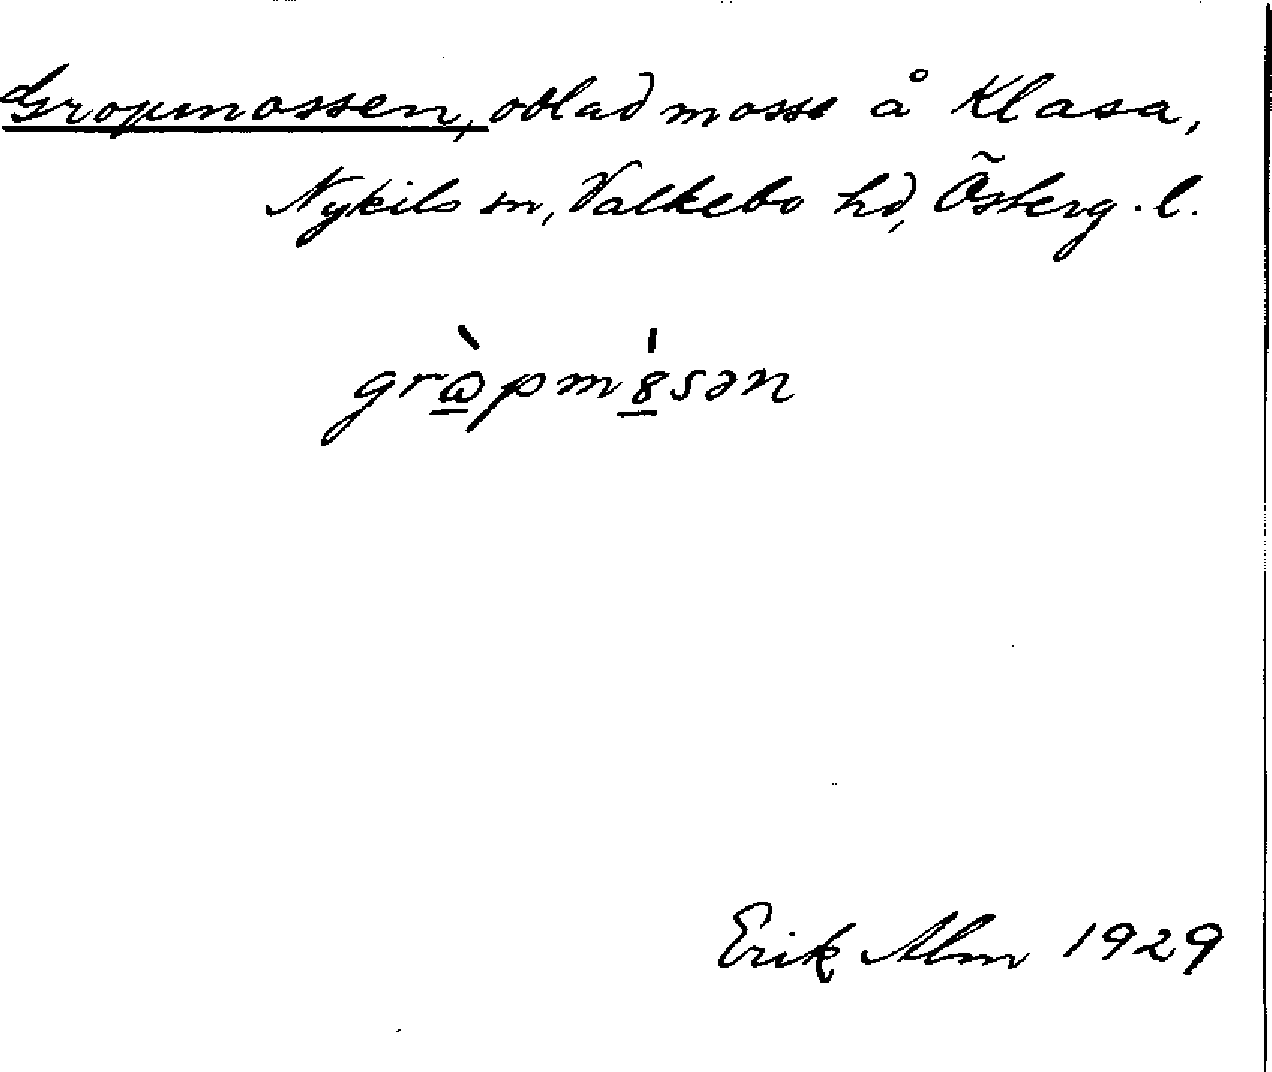 Gropmossen, odlad mosse å Klasa,
Nykils sn, Valkebo hd, Österg. l.
grⱺ̀pm8̍sən
Erik Alm 1929